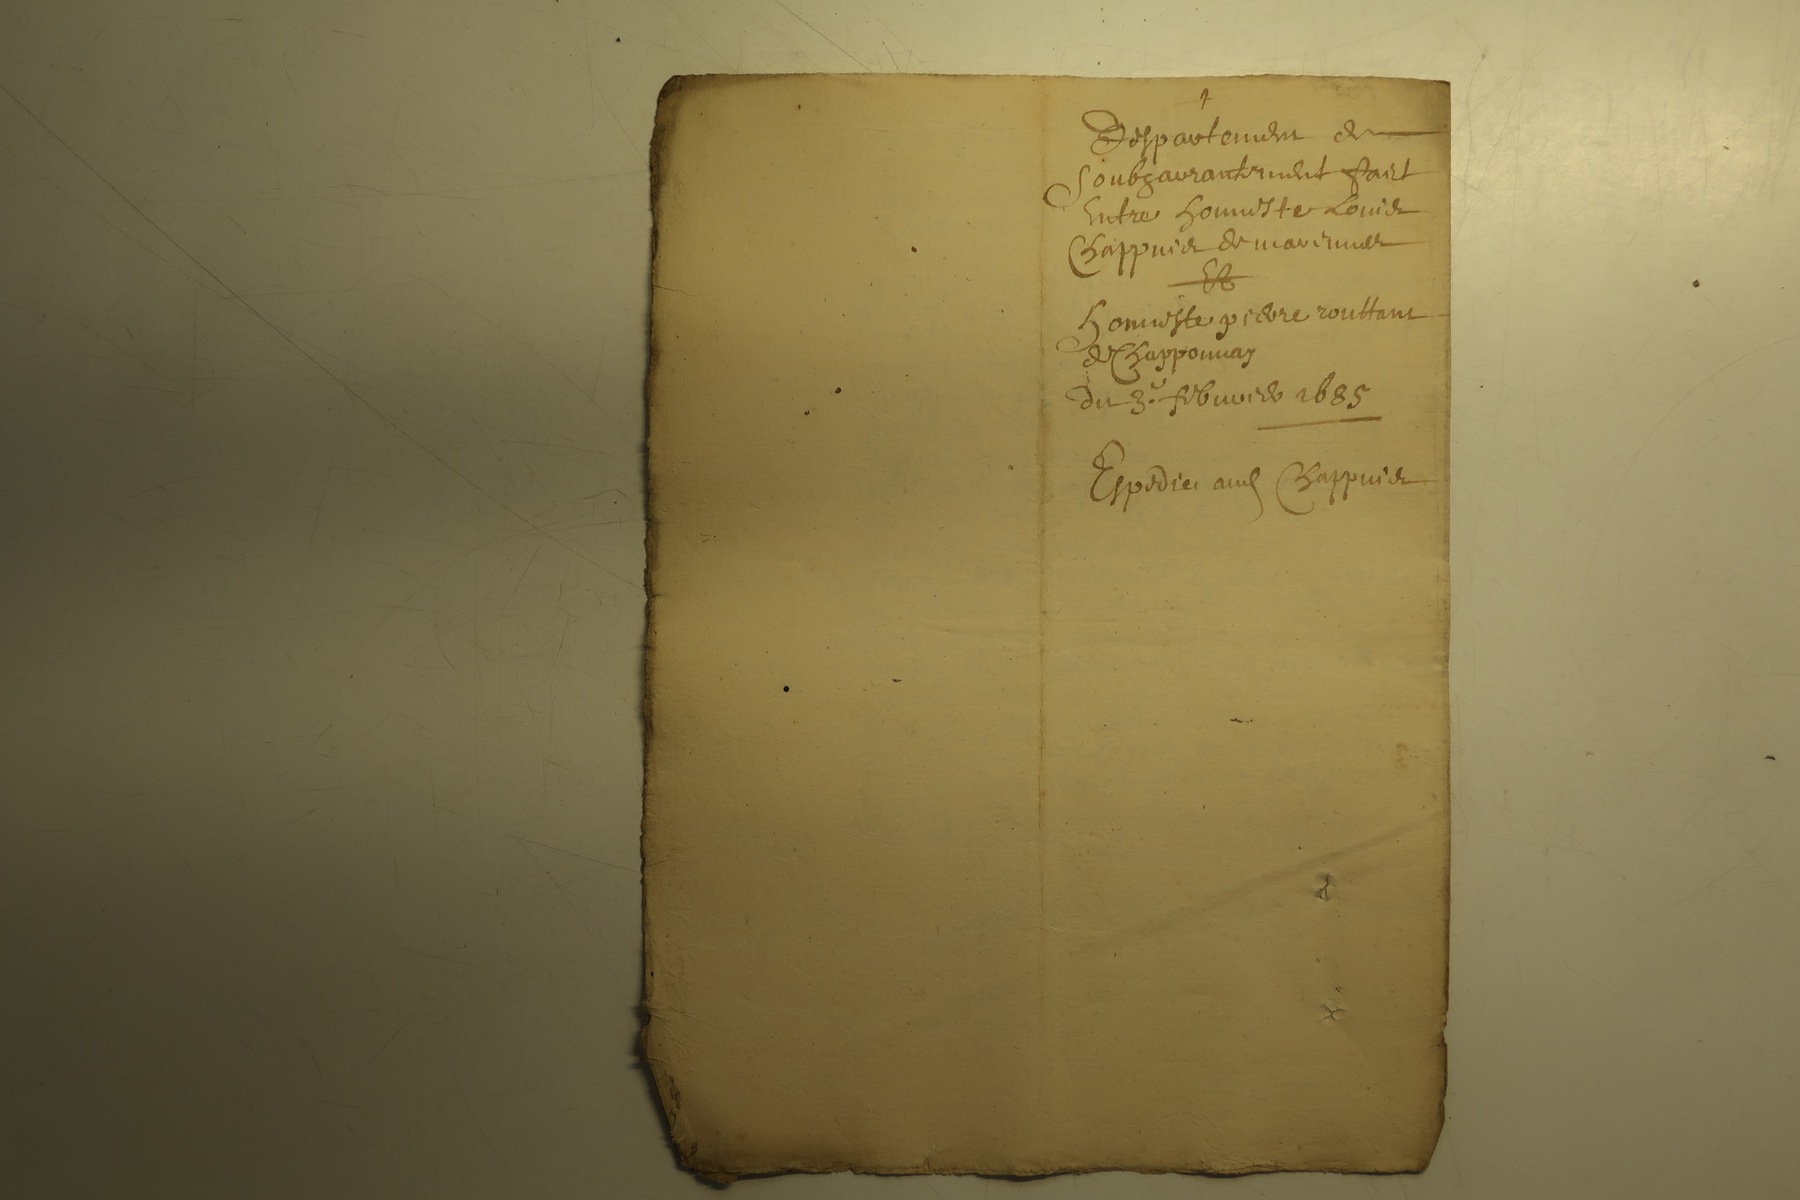 †
Despartement de
soubgarantement faict
Entre honneste Louis
Chappuis de marennes
Et
Honneste pierre routtant
de Chapponnay
du 3.e febvrier 1685
Expedie aud Chappuis